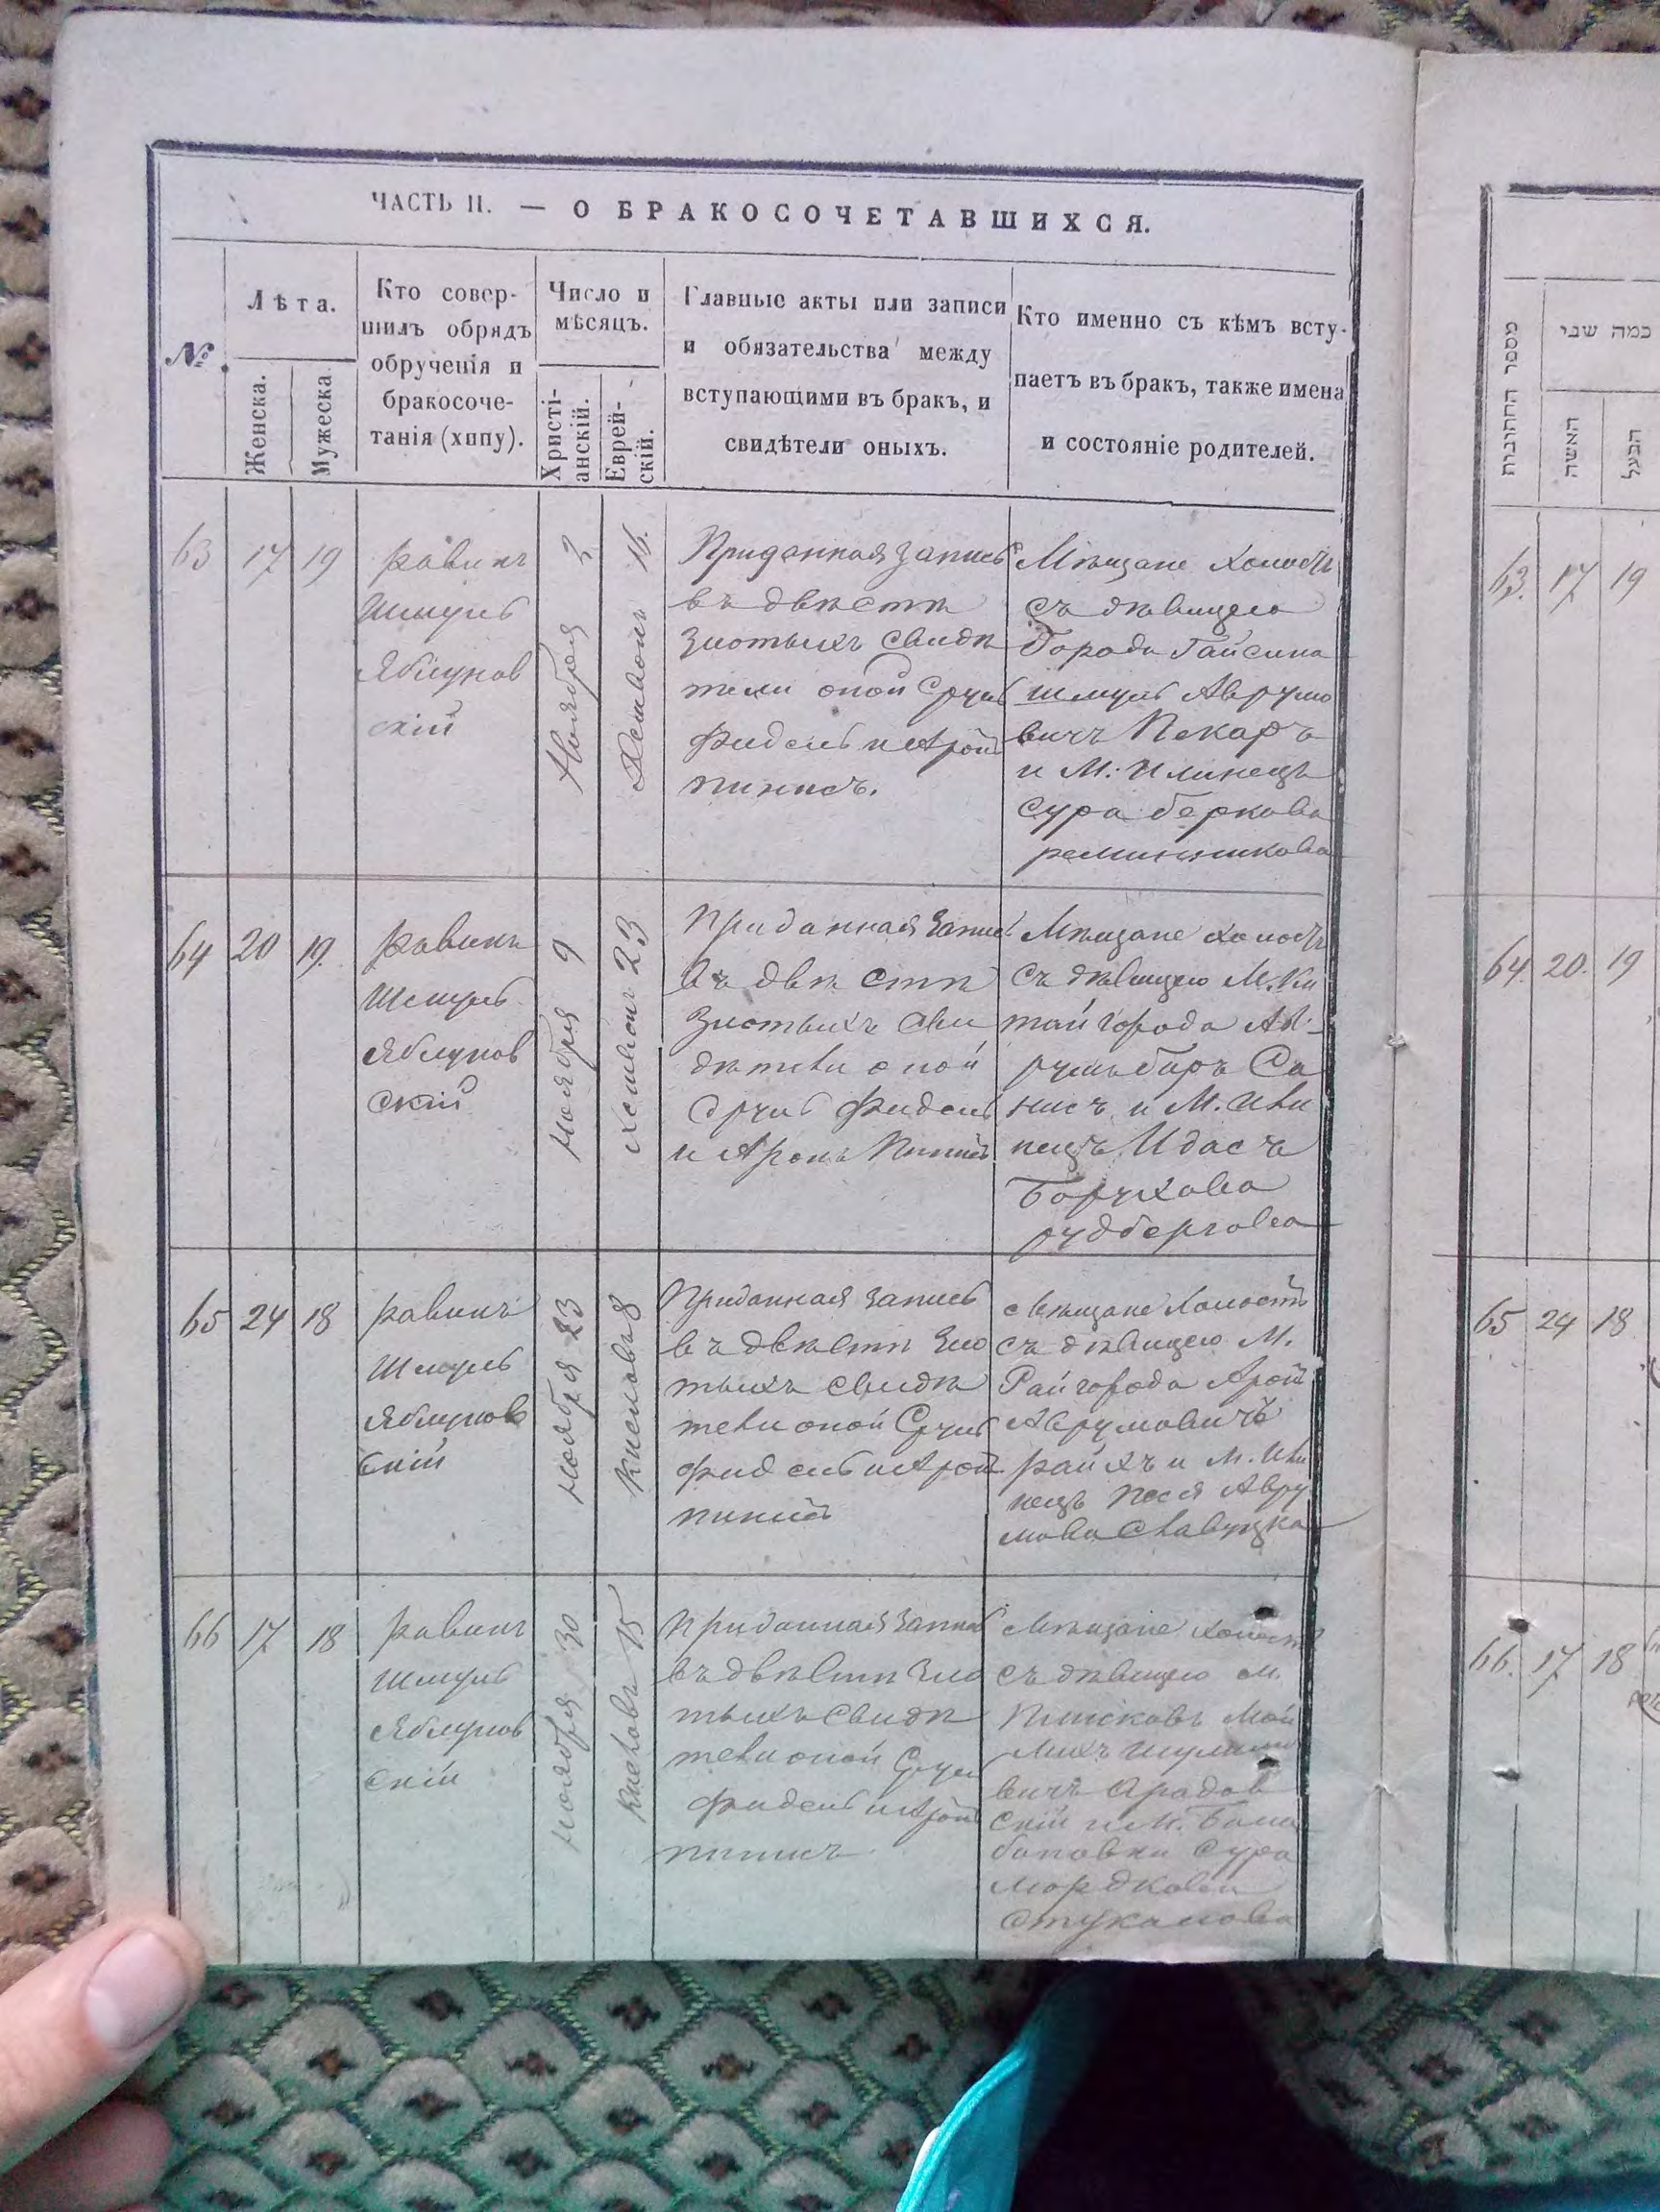 ЧАСТЬ II. — О БРАКОСОЧЕТАВШИХСЯ.
№
Лѣта.
Женска.
Мужеска.
Кто совер-
шилъ обрядъ
обрученія и
бракосоче-
танія (хипу).
Число и
мѣсяцъ.
Христі-
анскій.
Еврей-
скій.
Главные акты или записи
и обязательства между
вступающими въ бракъ, и
свидѣтели оныхъ.
Кто именно съ кѣмъ всту-
паетъ въ бракъ, также имена
и состояніе родителей.
63
17
19
равинъ
Шмуль
Яблунов
скій
Ноября 2
Хешвонъ 16.
Приданная запись
въ двѣстѣ
злотыхъ свидѣ
тели оной Сруль
Фидель и Аронъ
пинисъ.
Мѣщане холостъ
съ дѣвицею
города Гайсина
шмуль Аврумо
вичъ Пекаръ
и М: Илинецъ
Сура беркова
64
20
19.
равинъ
Шмуль
Яблунов
скій
Ноября 9
Хешвон 23
Приданная запись
въ двѣ стѣ
злотыхъ сви
дѣтели оной
Сруль Фидель
и Аронъ Пинисъ
Мѣщане холостъ
съ дѣвицею М. Ки
тай города Ав-
и М. Или
нецъ
Борухова
рудбергова
65
24
18
равинъ
Шмуль
Яблунов
скій
Ноября 23
Кислова 8
Приданная запись
въ двѣстѣ зло
тыхъ свидѣ
тели оной Сруль
Фидель и Арон
пинисъ
Мѣщане холостъ
съ дѣвицею М.
Райгорода Арон
Аврумовичъ
райхъ и М. Или
нецъ Песя Авру
мова Славуцка
66
17
18
равинъ
Шмуль
Яблунов
скій
Ноября 30
Кисловъ 15
Приданная запись
въ двѣстѣ зло
тыхъ свидѣ
тели оной Сруль
Фидель и Арон
пинисъ
Мѣщане холостъ
съ дѣвицею М.
скій и М. Бала
бановки Сура
мордкова
Стукалова
מספר החתונות
כמה שני
האשה
הבעל
63.
17
19
64.
20.
19
65
24
18
66.
17
18